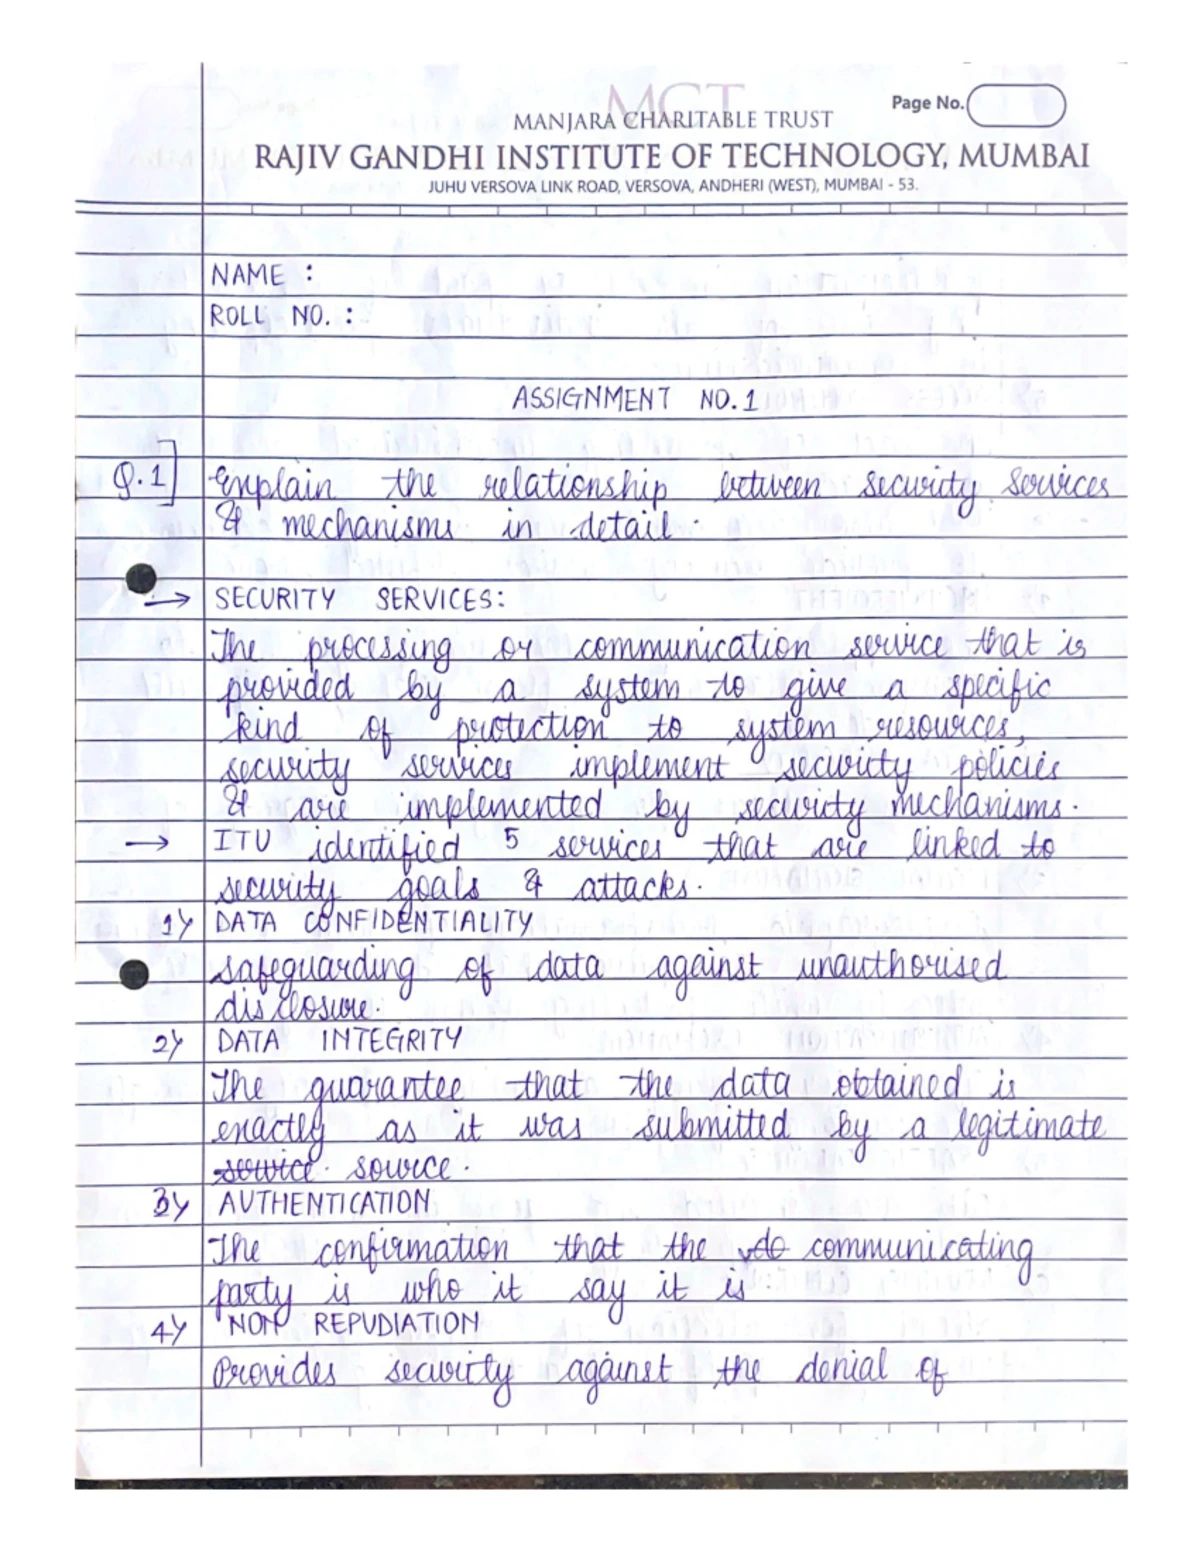 MCT
MANJARA CHARITABLE TRUST
Page No.
RAJIV GANDHI INSTITUTE OF TECHNOLOGY, MUMBAI
JUHU VERSOVA LINK ROAD, VERSOVA, ANDHERI (WEST), MUMBAI - 53.
NAME :
ROLL NO. :
ASSIGNMENT NO. 1
Q.1] Explain the relationship between security services
& mechanisms in detail.
→ SECURITY SERVICES:
The processing or communication service that is
provided by a system to give a specific
kind of protection to system resources,
security services implement security policies
& are implemented by security mechanisms.
→ ITU identified 5 services that are linked to
security goals & attacks.
1) DATA CONFIDENTIALITY
safeguarding of data against unauthorised
disclosure.
2) DATA INTEGRITY
The guarantee that the data obtained is
exactly as it was submitted by a legitimate
service. source.
3) AUTHENTICATION
The confirmation that the communicating
party is who it say it is.
4) NON REPUDIATION
Provides security against the denial of